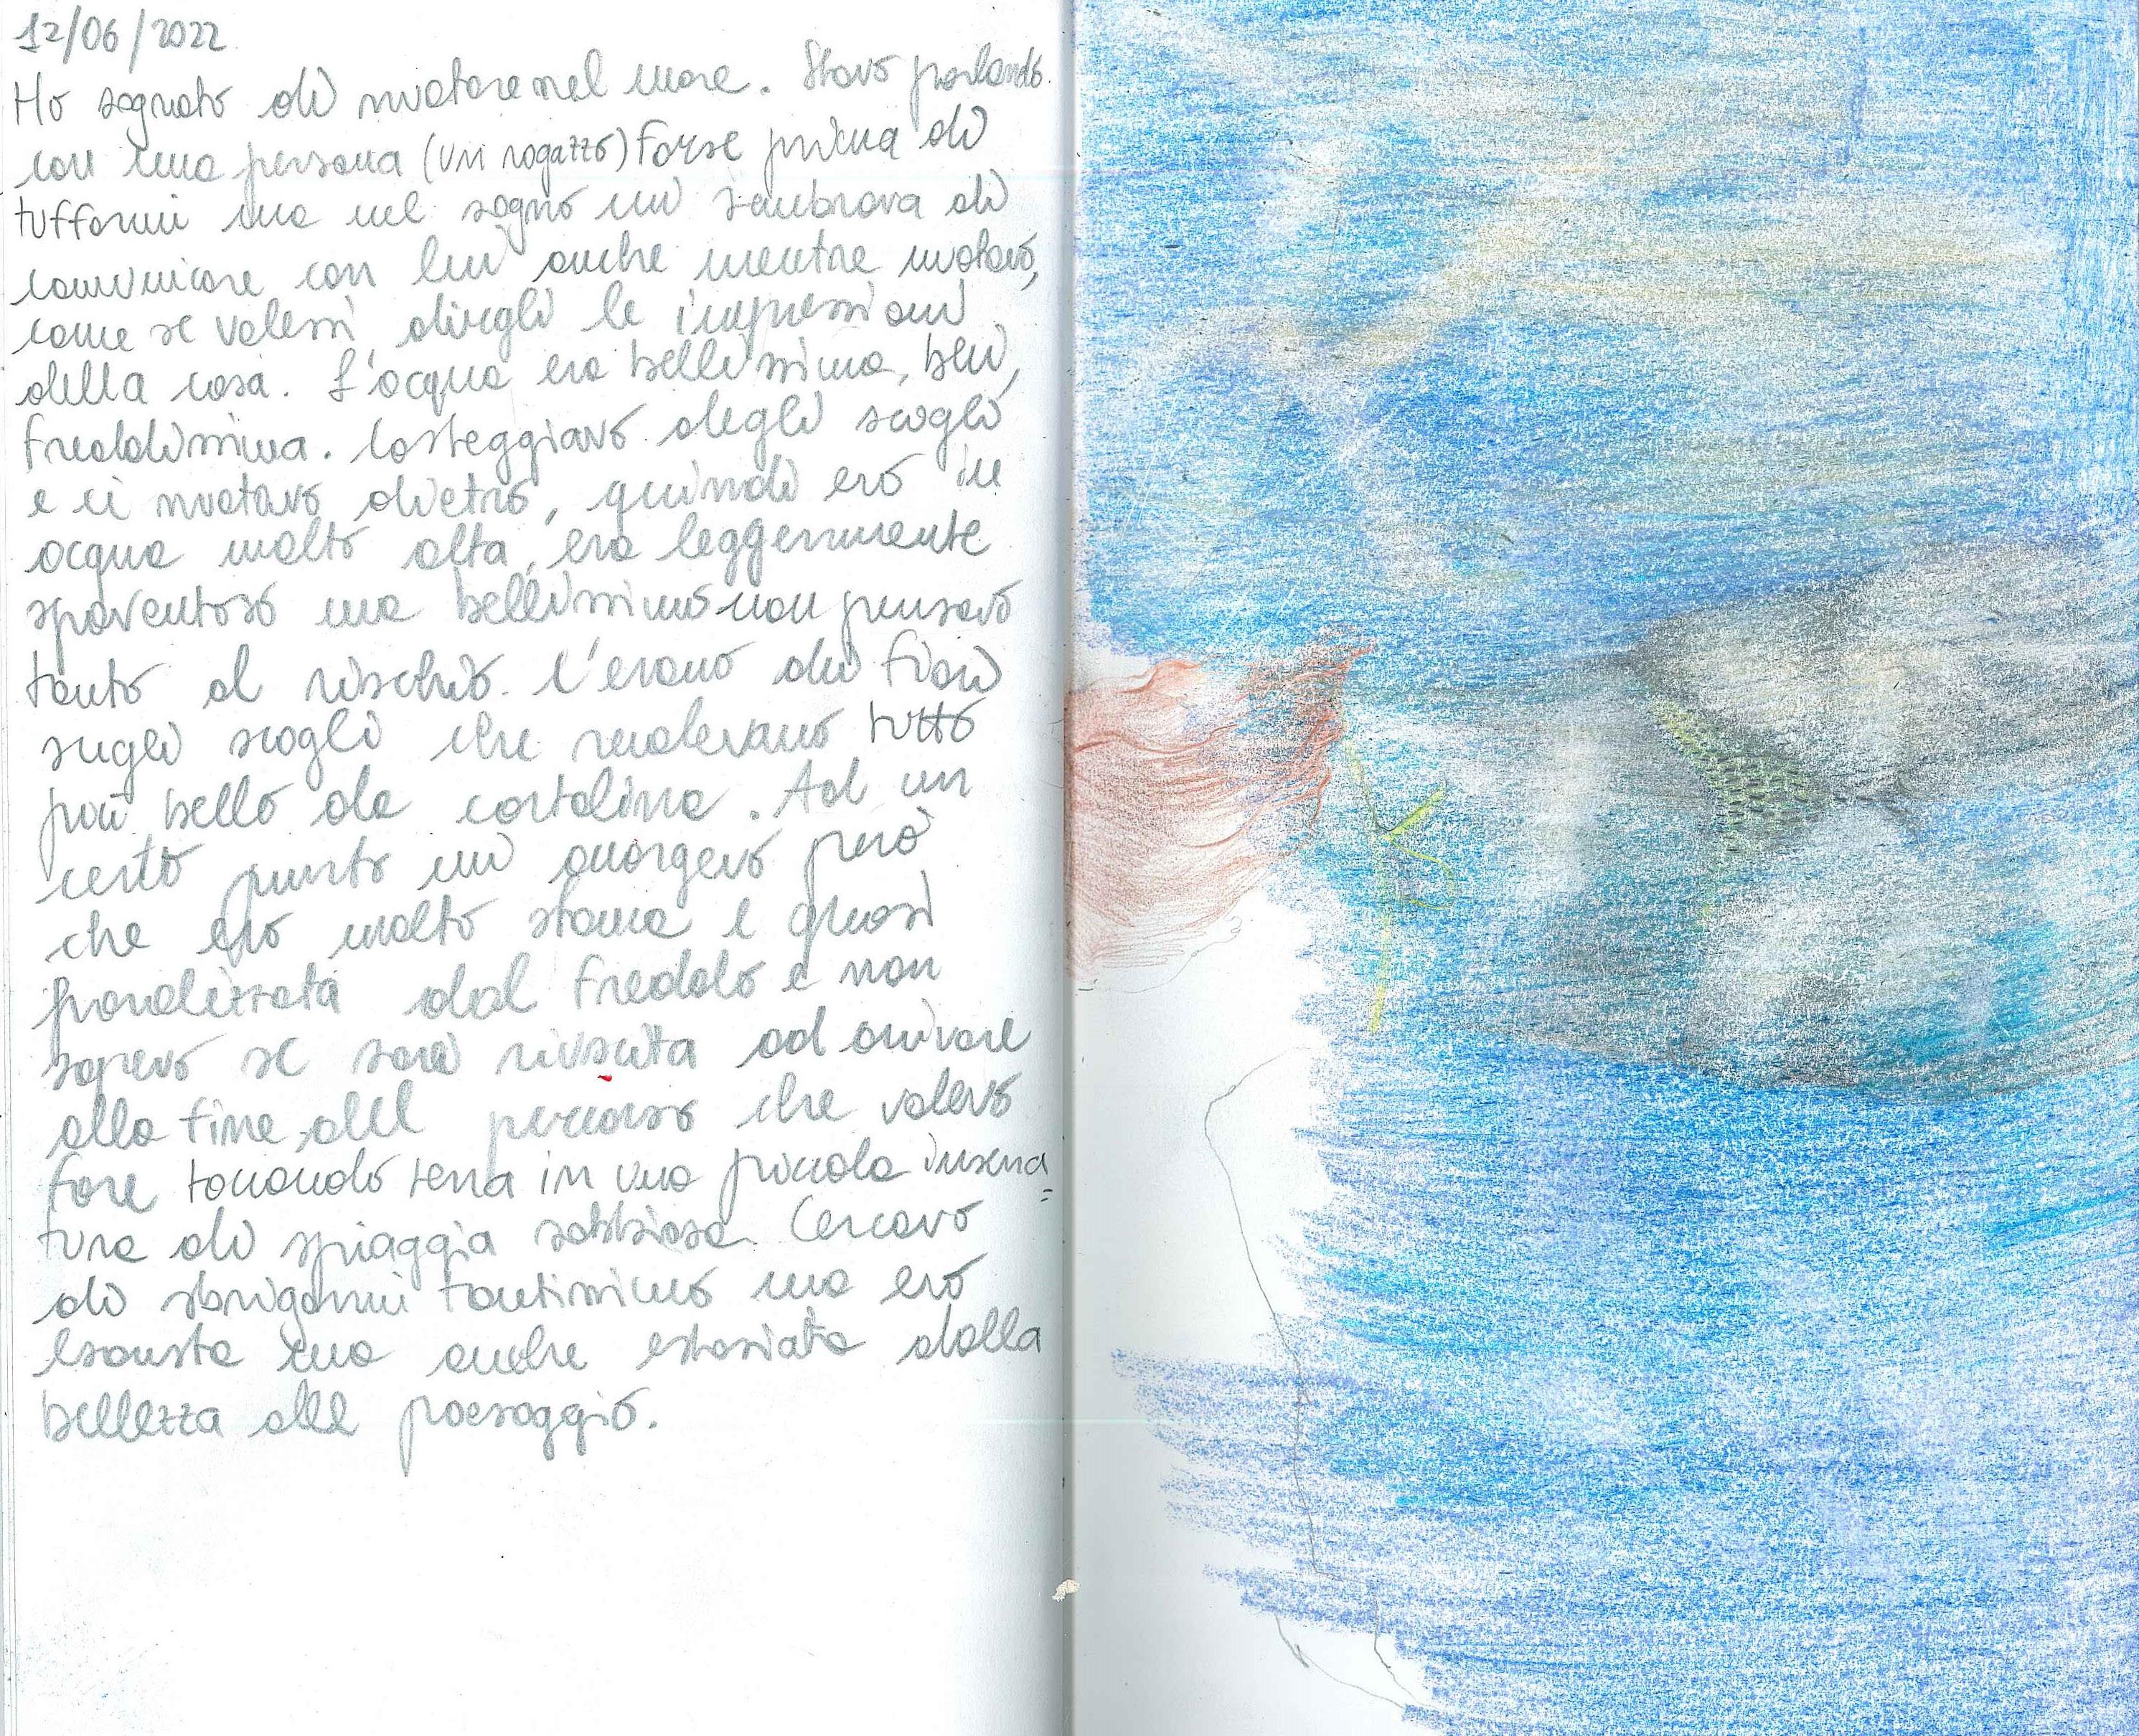 12/06/2022
Ho sognato di nuotare nel mare. Stavo parlando
con una persona (un ragazzo) forse prima di
tuffarmi ma nel sogno mi sembrava di
comunicare con lui anche mentre nuotavo,
come se volessi dirgli le impressioni
della cosa. L'acqua era bellissima, blu,
freddissima. Costeggiavo degli scogli
e ci nuotavo dietro, quindi ero in
acqua molto alta, era leggermente
spaventoso ma bellissimo non pensavo
tanto al rischio. C'erano dei fiori
sugli scogli che rendevano tutto
più bello da cartolina. Ad un
certo punto mi accorgevo però
che ero molto stanca e quasi
paralizzata dal freddo e non
sapevo se sarei riuscita ad arrivare
alla fine del percorso che volevo
fare toccando terra in una piccola insena=
tura di spiaggia sabbiosa. Cercavo
di sbrigarmi tantissimo ma ero
esausta ma anche estasiata dalla
bellezza del paesaggio.